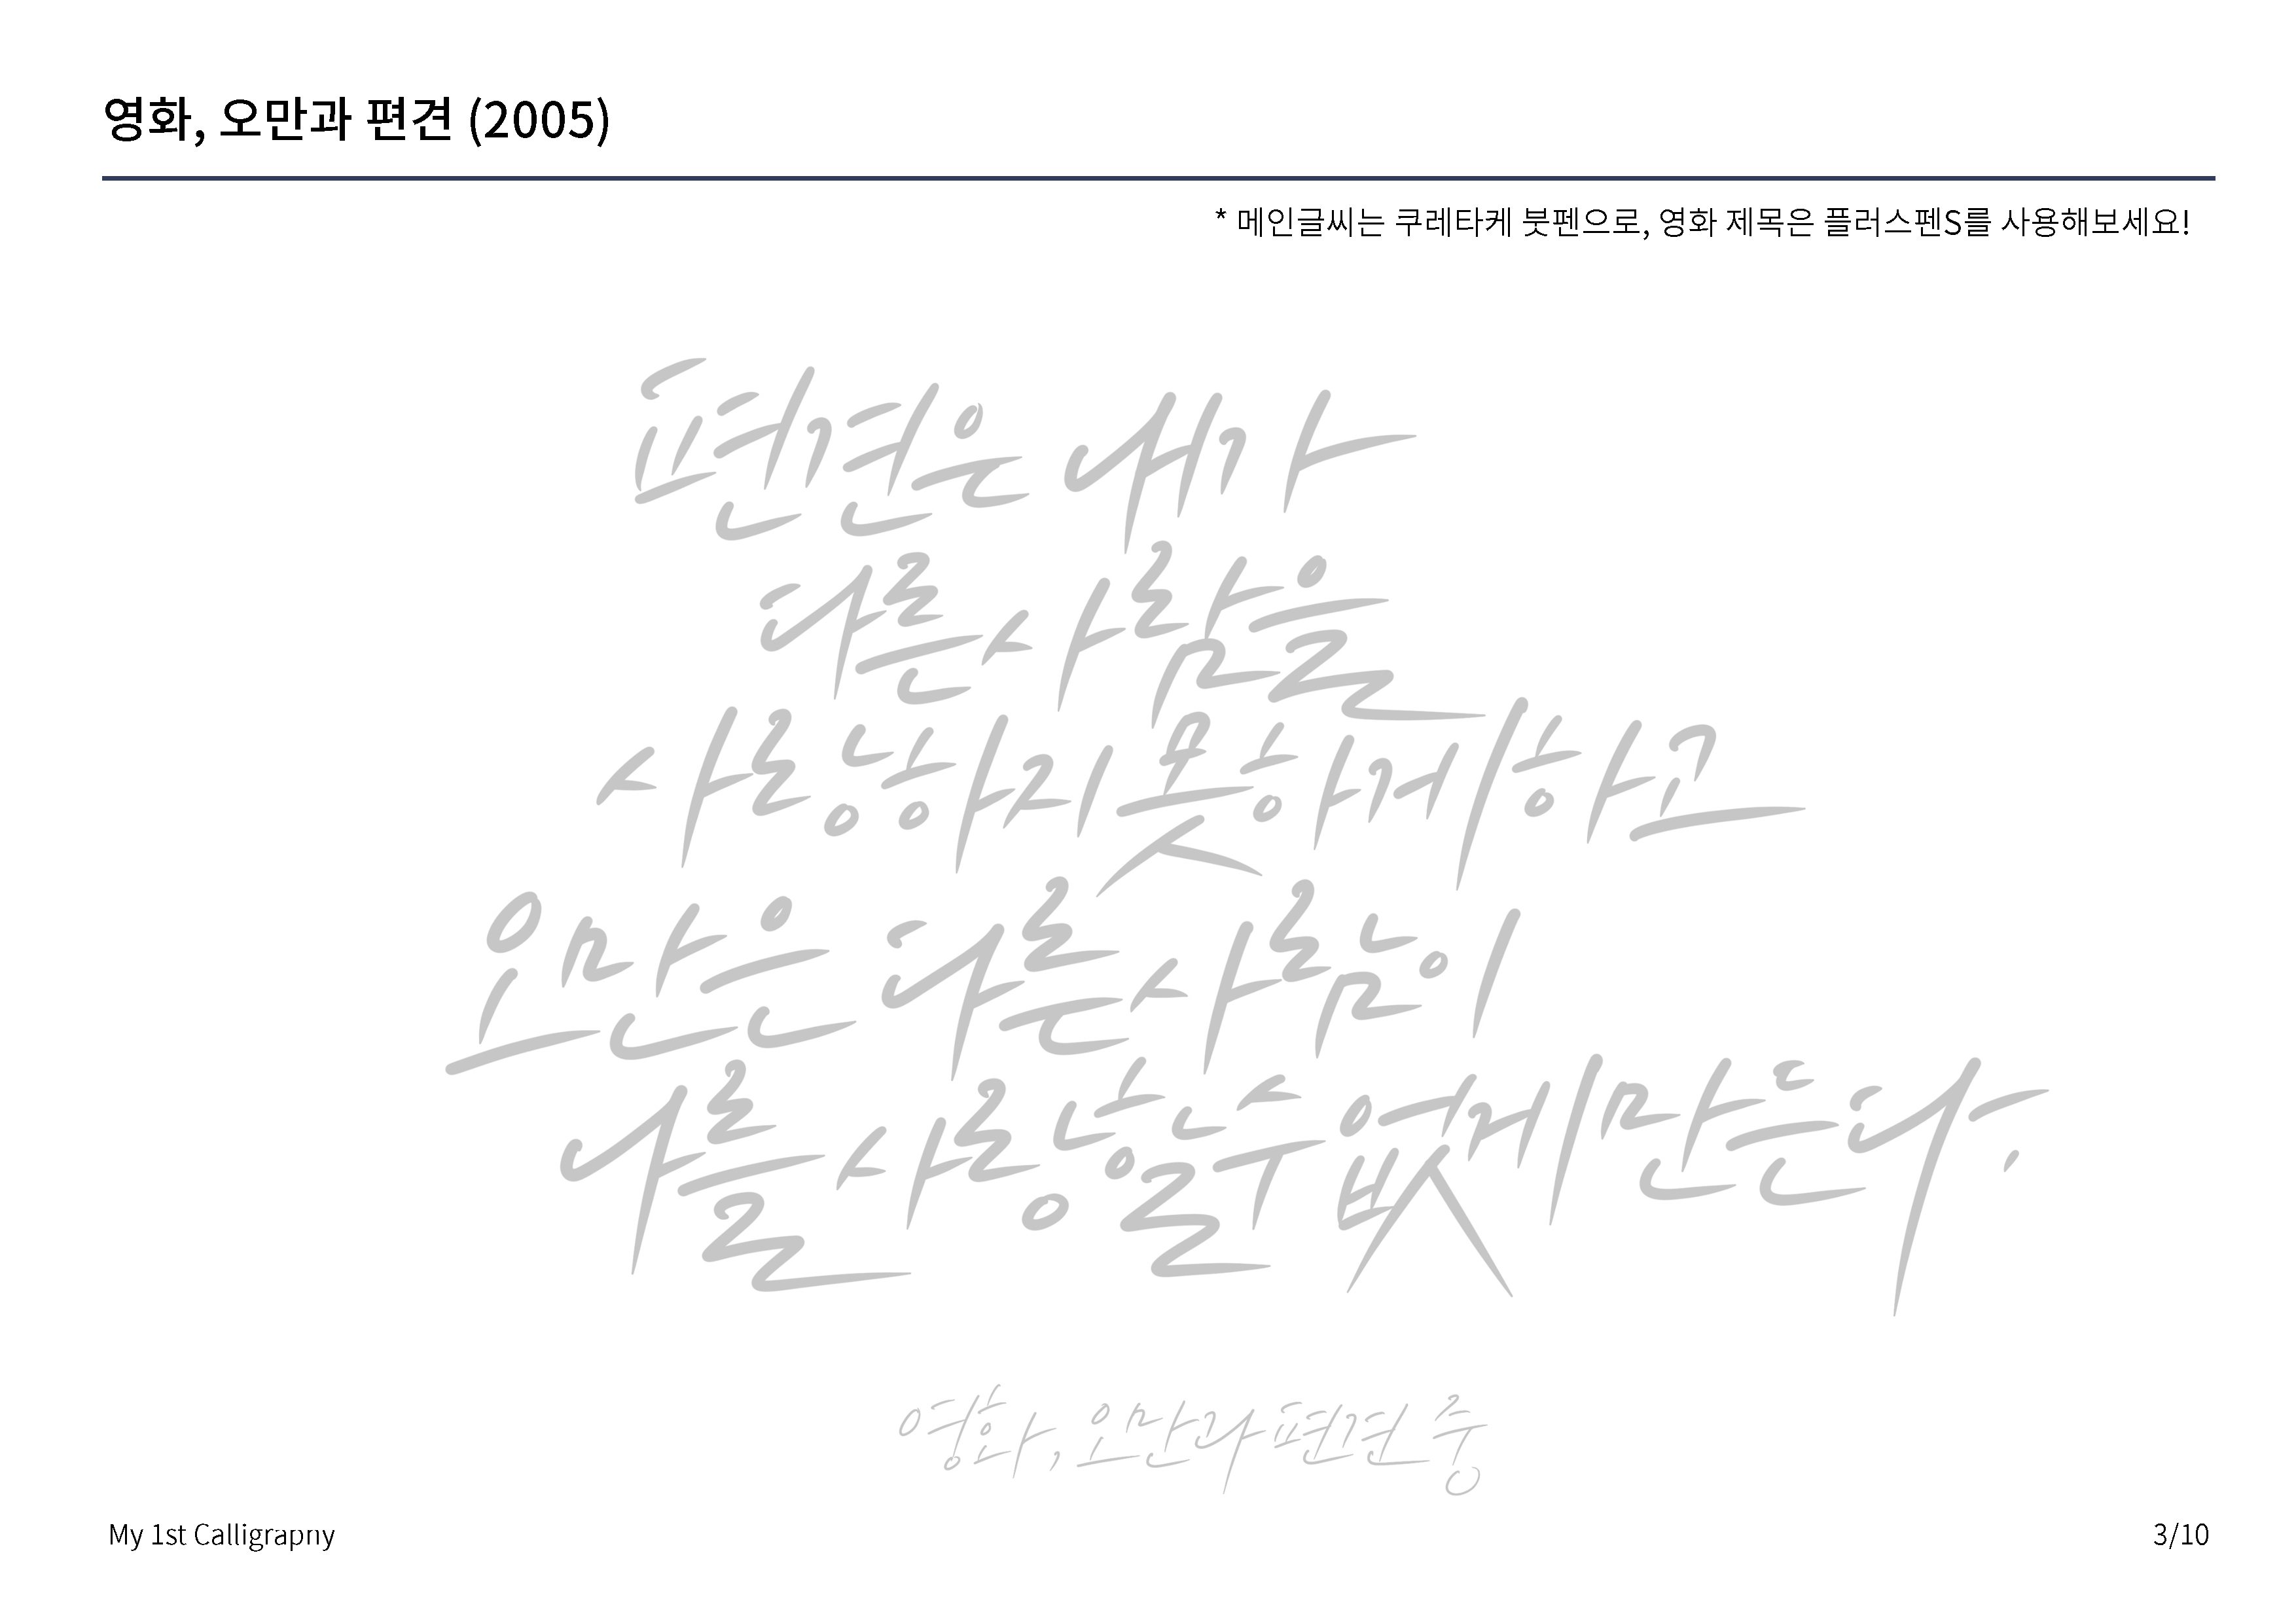 영화, 오만과 편견 (2005)
* 메인글씨는 쿠레타케 붓펜으로, 영화 제목은 플러스펜S를 사용해보세요!
편견은 내가
다른 사람을
사랑하지 못하게 하고
오만은 다른 사람이
나를 사랑할 수 없게 만든다.
영화, 오만과 편견 중
My 1st Calligrapny
3/10